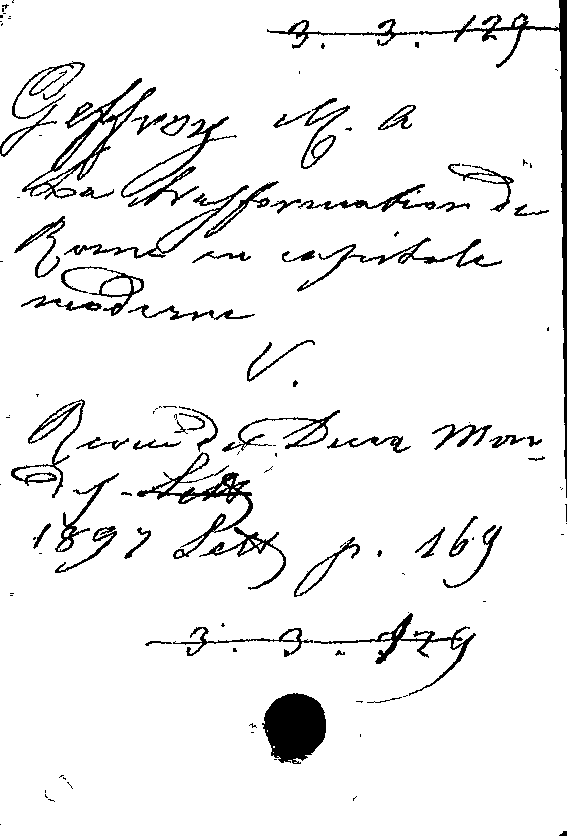 3. 3. 129
Geffroy M. A
La trasformation de
Rome en capitale
moderne
V.
Revue des Deux Mon-
des - Sett
1897 Sett p. 169
3. 3. 129